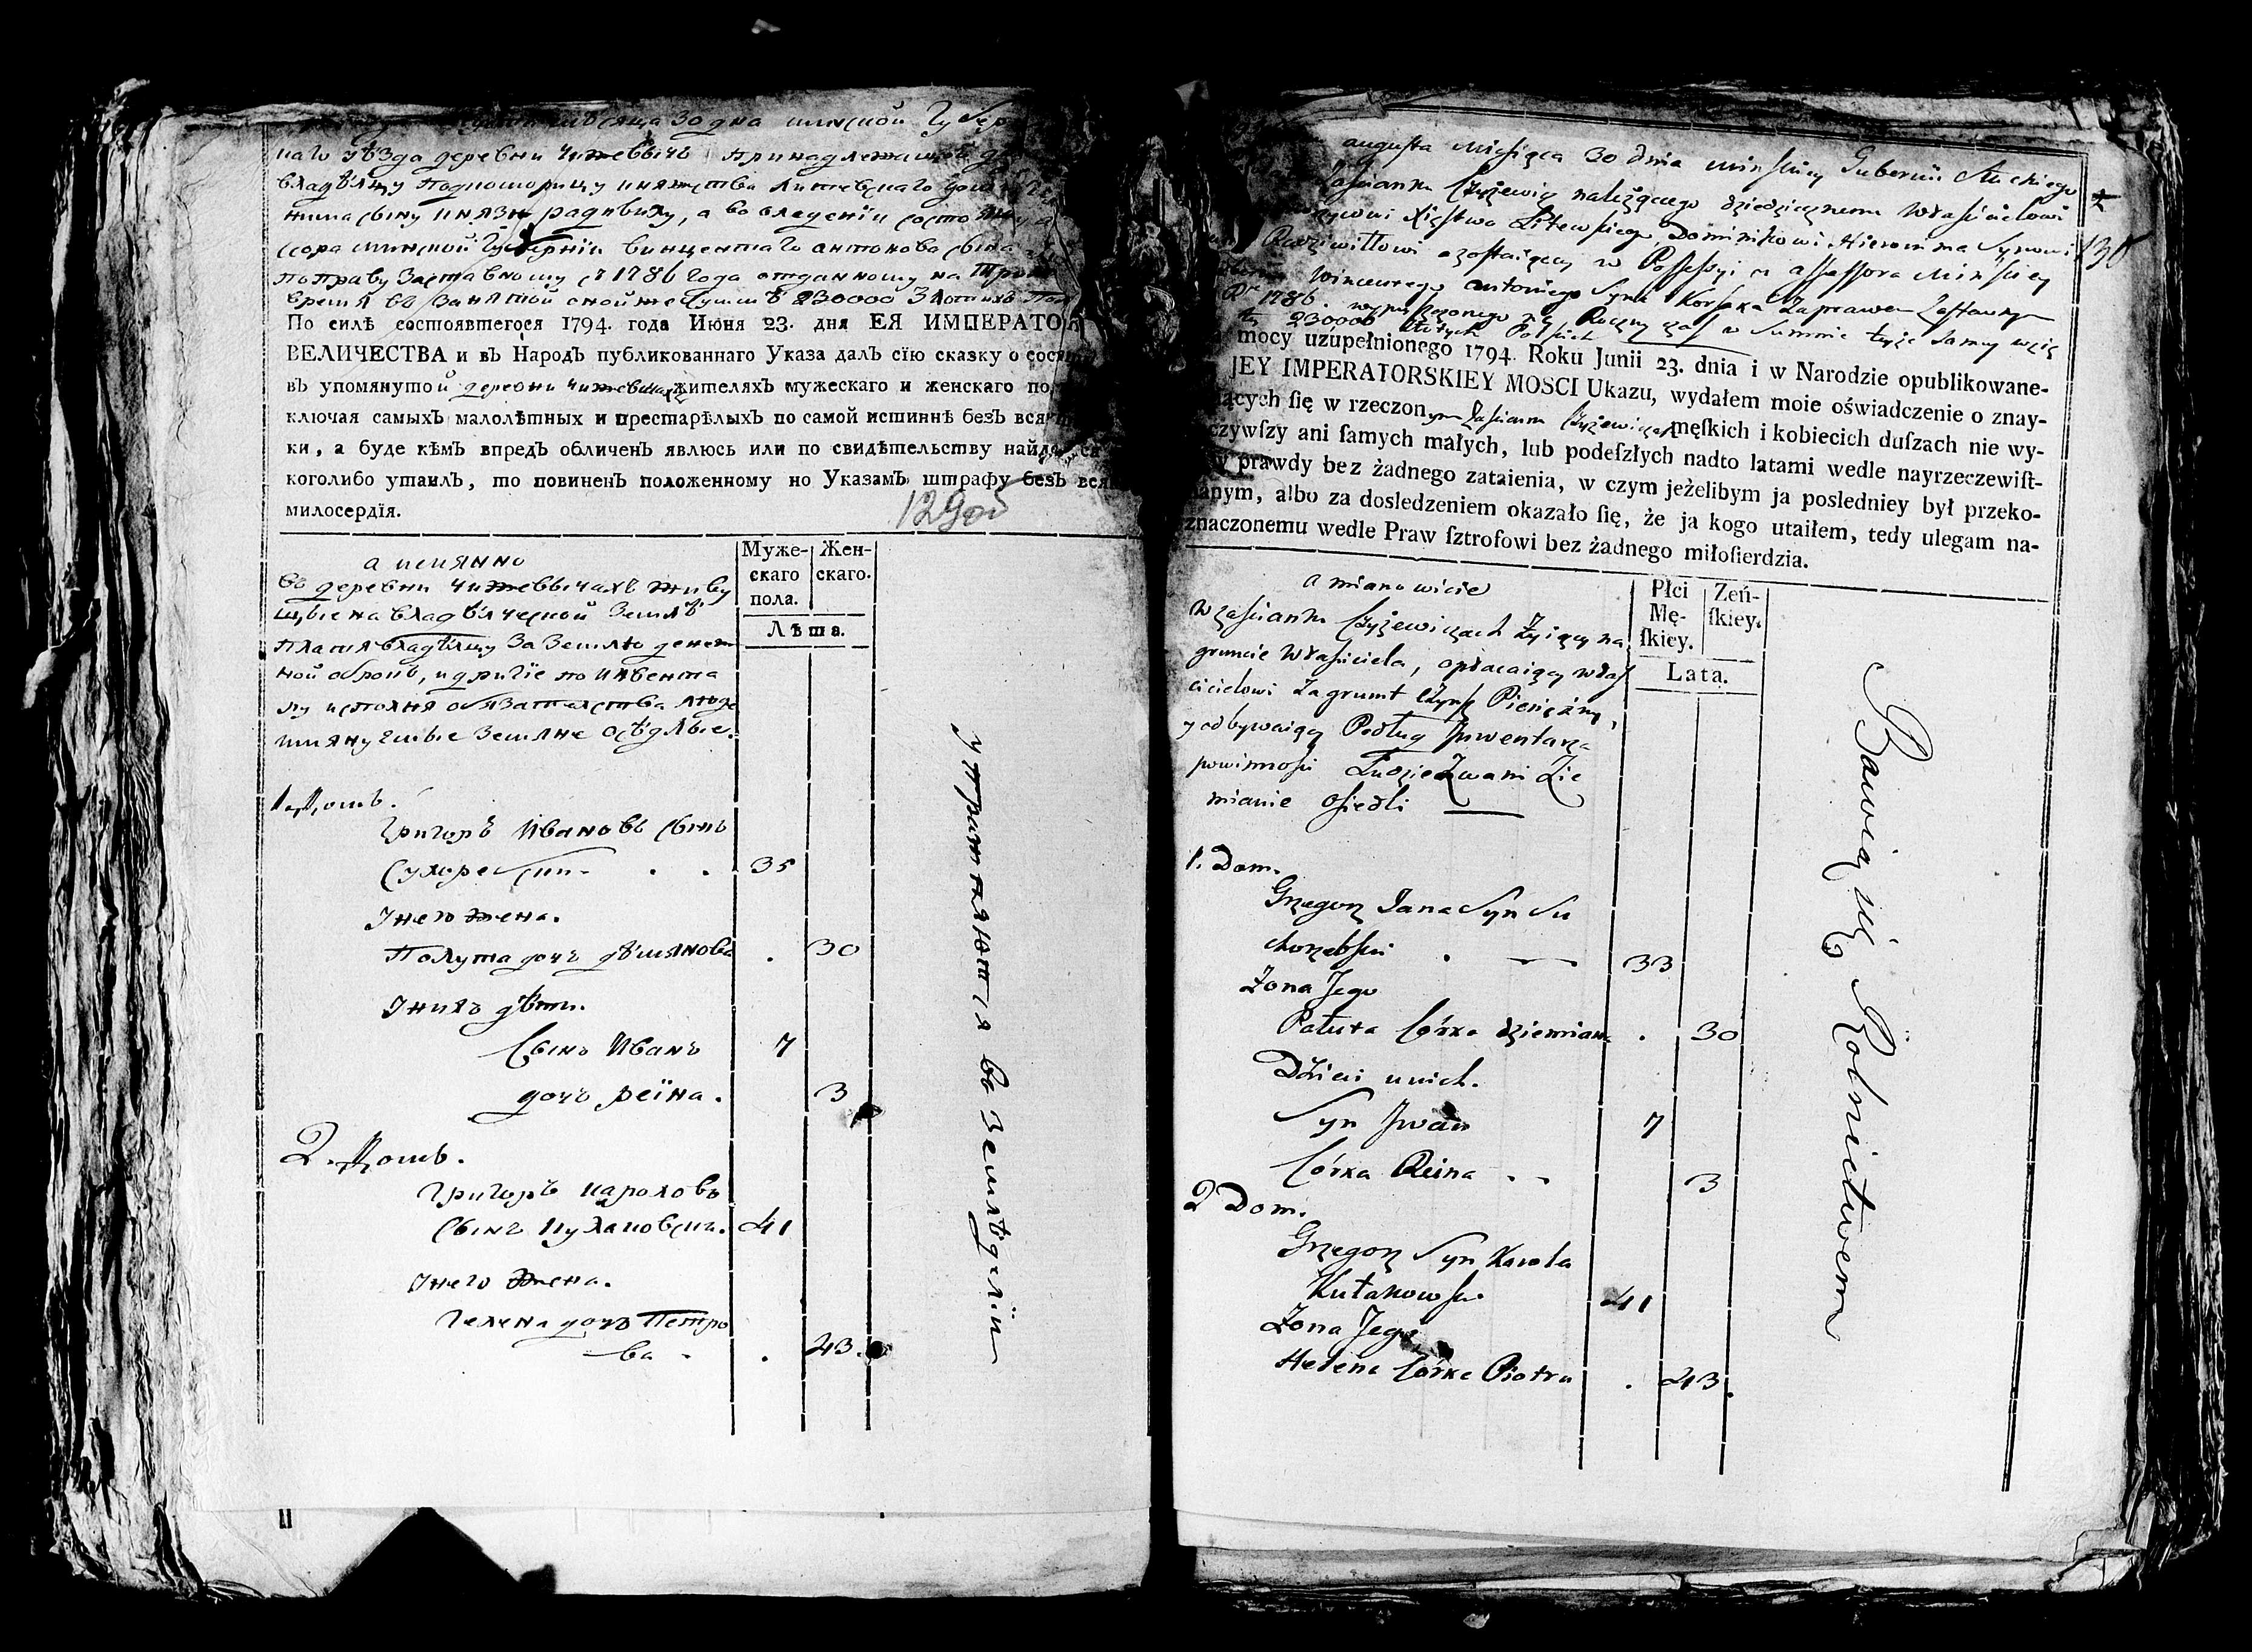 мѣсяца 30 дна минской Губер
наго уѣзда деревни Чижевичъ принадлежащей
владѣлцу Подкоморицу княжства литевскаго
нима сыну князю радивилу, а во владении состоящу
сора минской Губернiи винцентаго антонова сына
поправу Заставному с 1786 года отданному на
время въ Занятой оной же Суммѣ 230000 Злотихъ Пол
По силѣ состоявшегося 1794. года Июня 23. дня ЕЯ ИМПЕРАТО
ВЕЛИЧЕСТВА и въ Народъ публикованнаго Указа далъ сїю сказку о состоя
въ упомянутой деревни Чижевичахъ жителяхъ мужескаго и женскаго по
ключая самыхъ малолѣтныхъ и престарѣлыхъ по самой истиннѣ безъ вся
ки, а буде кѣмъ впредъ обличенъ явлюсь или по свидѣтельству найде
коголибо утаилъ, то повиненъ положенному по Указамъ штрафу безъ вся
милосердїя.
129об
а имянно
въ деревни Чижевичахъ живу
щые на владѣлческой Землѣ
платя владѣлцу За Землю денеж
ной оброкъ, и другiе по инвента
ру исполня обязателства люде
имянуемые Земляне осѣдлые.
Муже-
скаго
пола.
Жен-
скаго.
Лѣта.
1 Домъ.
Григоръ Ивановъ сынъ
Сухоребски - . . 35
У него жена.
Полута дочъ дѣмянова . 30
У нихъ дѣти.
Сынъ Иванъ 7
дочъ реїна . 3
2. Домъ.
Григоръ кароловъ
сынъ Кулаковски. 41
У него жена.
Гелена дочъ Петро
ва - . 43.
упражняются въ земледелiи
augusta Miesiąca 30 dnia Minskiey Gubernii Słuckiego
Zascianku Czyżewicz należącego dziedzicznemu Właścicielowi
Xięstwa Litewskiego Dominikowi Hieronima Synowi
Radziwiłłowi a zostaiący w Possessyi assessora Minskiey
Wincentego antoniego Syna Korsaka Zaprawem Zastawnym
1786. wypuszczonego na Roczny czas w Summie teyże Samey wzię
tey 230000 złotych Polskich
130
mocy uzupełnionego 1794. Roku Junii 23. dnia i w Narodzie opublikowane-
JEY IMPERATORSKIEY MOSCI Ukazu, wydałem moie oświadczenie o znay-
ących ſię w rzeczonym Zascianku Czyżewiczach męſkich i kobiecich duſzach nie wy-
czywſzy ani ſamych małych, lub podeſzłych nadto latami wedle nayrzeczewiſt-
y prawdy bez żadnego zataienia, w czym jeżelibym ja posledniey był przeko-
anym, albo za dosledzeniem okazało ſię, że ja kogo utaiłem, tedy ulegam na-
znaczonemu wedle Praw ſztrofowi bez żadnego miłoſierdzia.
a mianowicie
W zascianku Czyżewiczach Żyiący na
gruncie Własciciela, opłacaiący włas
cicielowi Za grunt Czynsz Pieniężny,
y odbywaiący Podług Jnwentarza
powinnosci Ludzie Zwani Zie
mianie Osiedli
Płci
Mę-
ſkiey.
Zeń-
ſkiey.
Lata.
1. Dom.
Grzegorz Jana Syn Su
chorzebski . 33
Żona Jego
Połuta Córka dziemiana . 30
Dzieci u nich.
Syn Jwan 7
Córka Reina - - 3
2 Dom.
Grzegorz Syn Karola
Kułakowski 41
Żona Jego
Helena Córka Piotra . 43.
Bawią się Rolnictwem